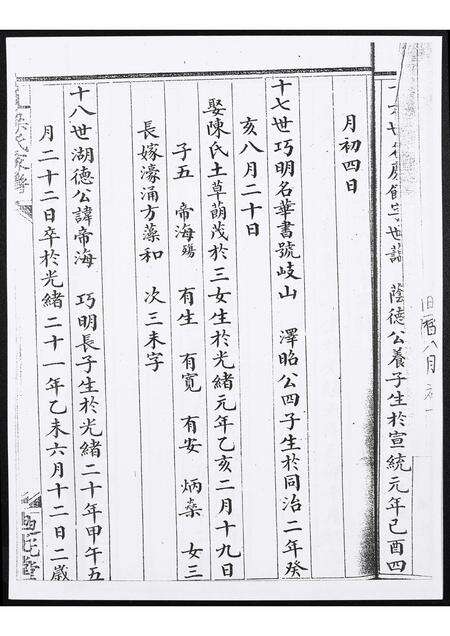 養子生於宣統元年己酉四
月初四日
十七世巧明名華書號岐山 澤昭公四子生於同治二年癸
亥八月二十日
娶陳氏土草萌茂於三女生於光緒元年乙亥二月十九日
子五 帝海殤 有生 有寬 有安 炳燊 女三
長嫁濠涌方藻和 次三未字
十八世湖德公諱帝海 巧明長子生於光緒二十年甲午五
月二十二日卒於光緒二十一年乙未六月十二日二歲